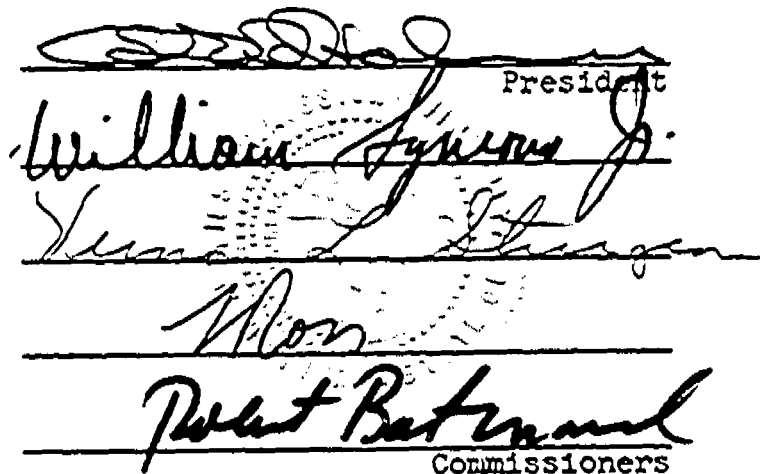 President
William Symons Jr.
Vernon L. Sturgeon
Moran
Robert Batinovich
Commissioners